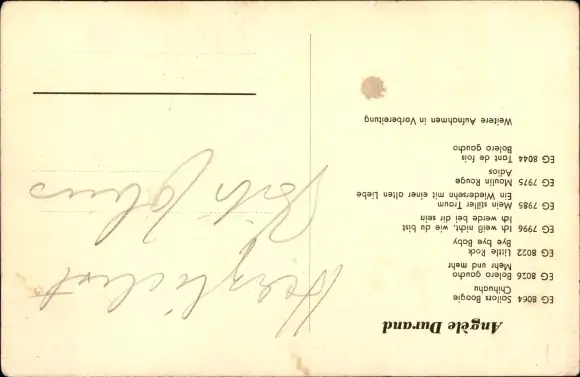 Angèle Durand
EG 8064 Sailors Boogie
Chihuahu
EG 8026 Bolero gaucho
Mehr und mehr
EG 8022 Little Rock
Bye bye Baby
EG 7996 Ich weiß nicht, wie du bist
Ich werde bei dir sein
EG 7985 Mein stiller Traum
Ein Wiedersehn mit einer alten Liebe
EG 7975 Moulin Rouge
Adios
EG 8044 Tant de fois
Bolero gaucho
Weitere Aufnahmen in Vorbereitung
Herzlichst